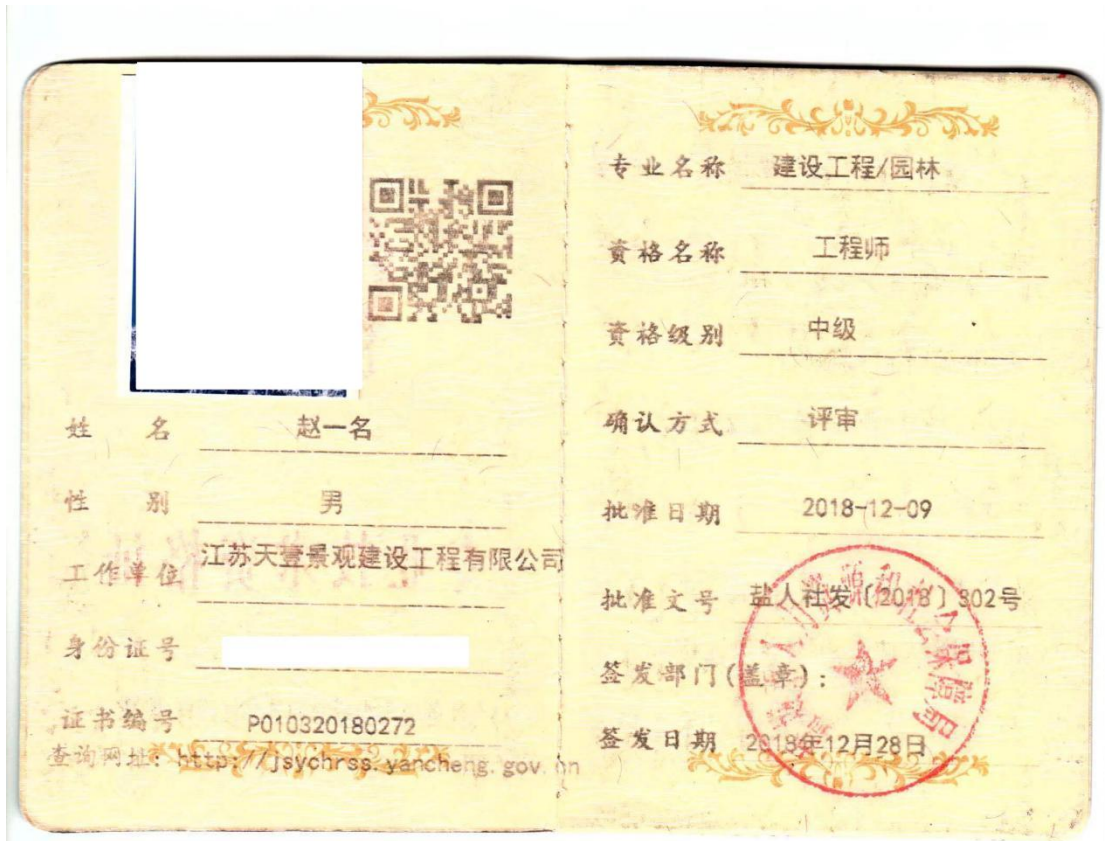 姓 名 赵一名
性 别 男
工作单位 江苏天壹景观建设工程有限公司
身份证号
证书编号 P010320180272
查询网址: http://jsychrss.yancheng.gov.cn
专业名称 建设工程/园林
资格名称 工程师
资格级别 中级
确认方式 评审
批准日期 2018-12-09
批准文号 盐人社发〔2018〕302号
签发部门(盖章):
签发日期 2018年12月28日
人力资源和社会保障局